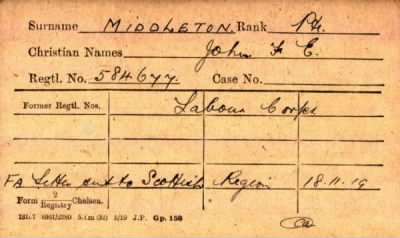 Surname MIDDLETON. Rank Pte.
Christian Names John F E.
Regtl. No. 584677. Case No.
Former Regtl. Nos. Labour Corps
FA Letter sent to Scottish Region 18.11.19
Form 2 Registry Chelsea.
5/19 J.P. Gp. 158